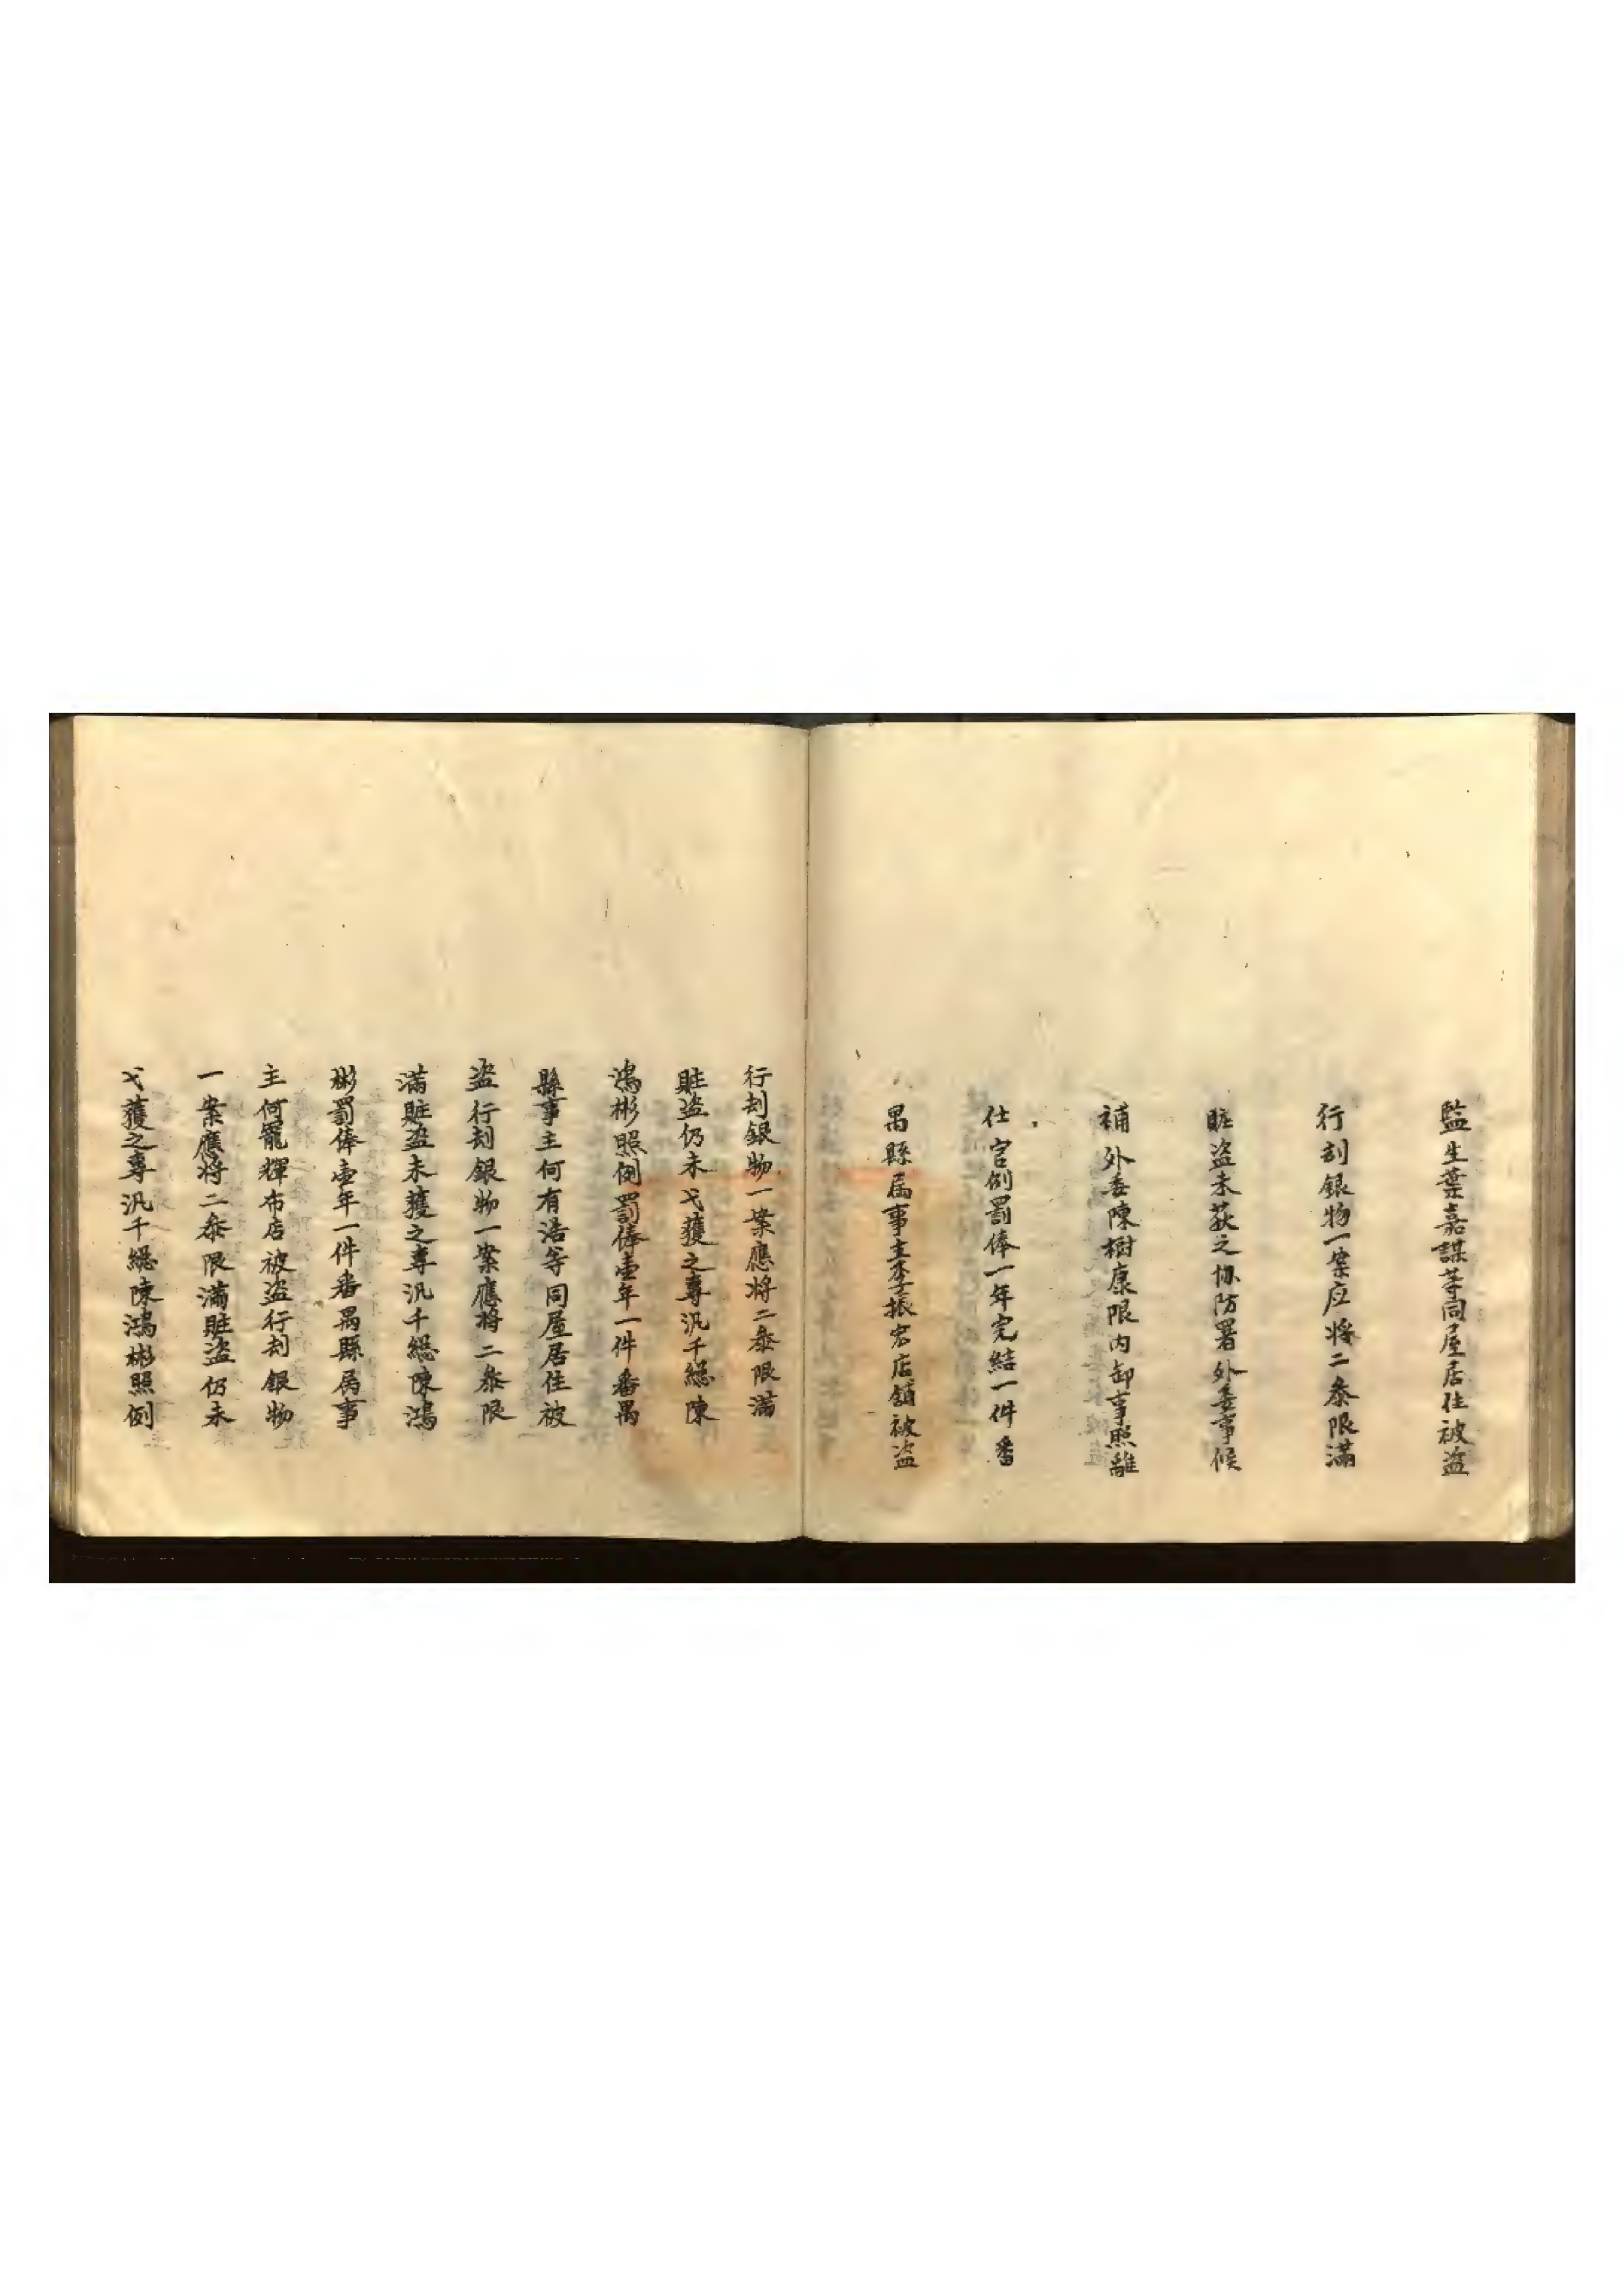 監生葉嘉謀等同屋居住被盜
行刧銀物一案应將二叅限滿
賍盜未获之协防署外委事候
補外委陳樹康限內卸事照離
仕官例罰俸一年完結一件番
禺縣属事主李振宏店舖被盜
行刧銀物一案應将二叅限滿
賍盜仍未弋獲之專汛千総陳
鴻彬照例罰俸壹年一件番禺
縣事主何有浩等同屋居住被
盜行刧銀物一案應将二叅限
滿賍盜未獲之專汛千総陳鴻
彬罰俸壹年一件番禺縣属事
主何寵輝布店被盜行刧銀物
一案應将二叅限滿賍盜仍未
弋獲之專汛千総陳鴻彬照例